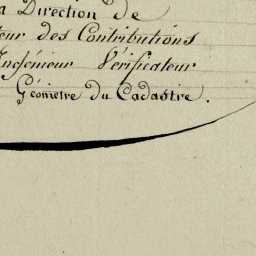 a Direction de
teur des Contributions
Ingénieur Vérificateur
Géometre du Cadastre.